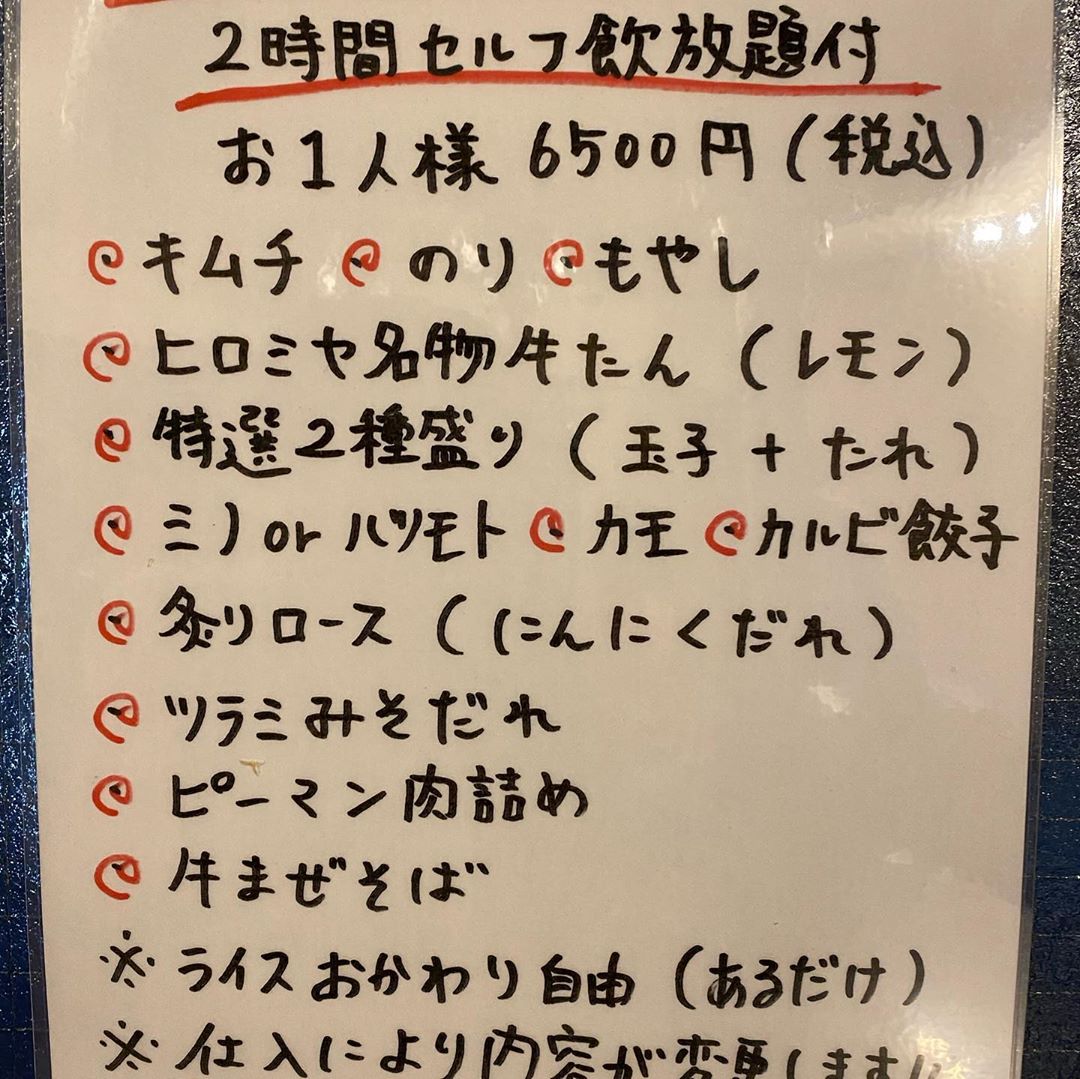 2時間セルフ飲放題付
お1人様 6500円(税込)
キムチ のり もやし
ヒロミヤ名物牛たん (レモン)
特選2種盛り (玉子 + たれ)
ミノorハツモト カモ カルビ餃子
炙りロース (にんにくだれ)
ツラミみそだれ
ピーマン肉詰め
牛まぜそば
※ライスおかわり自由 (あるだけ)
※仕入により内容が変更します